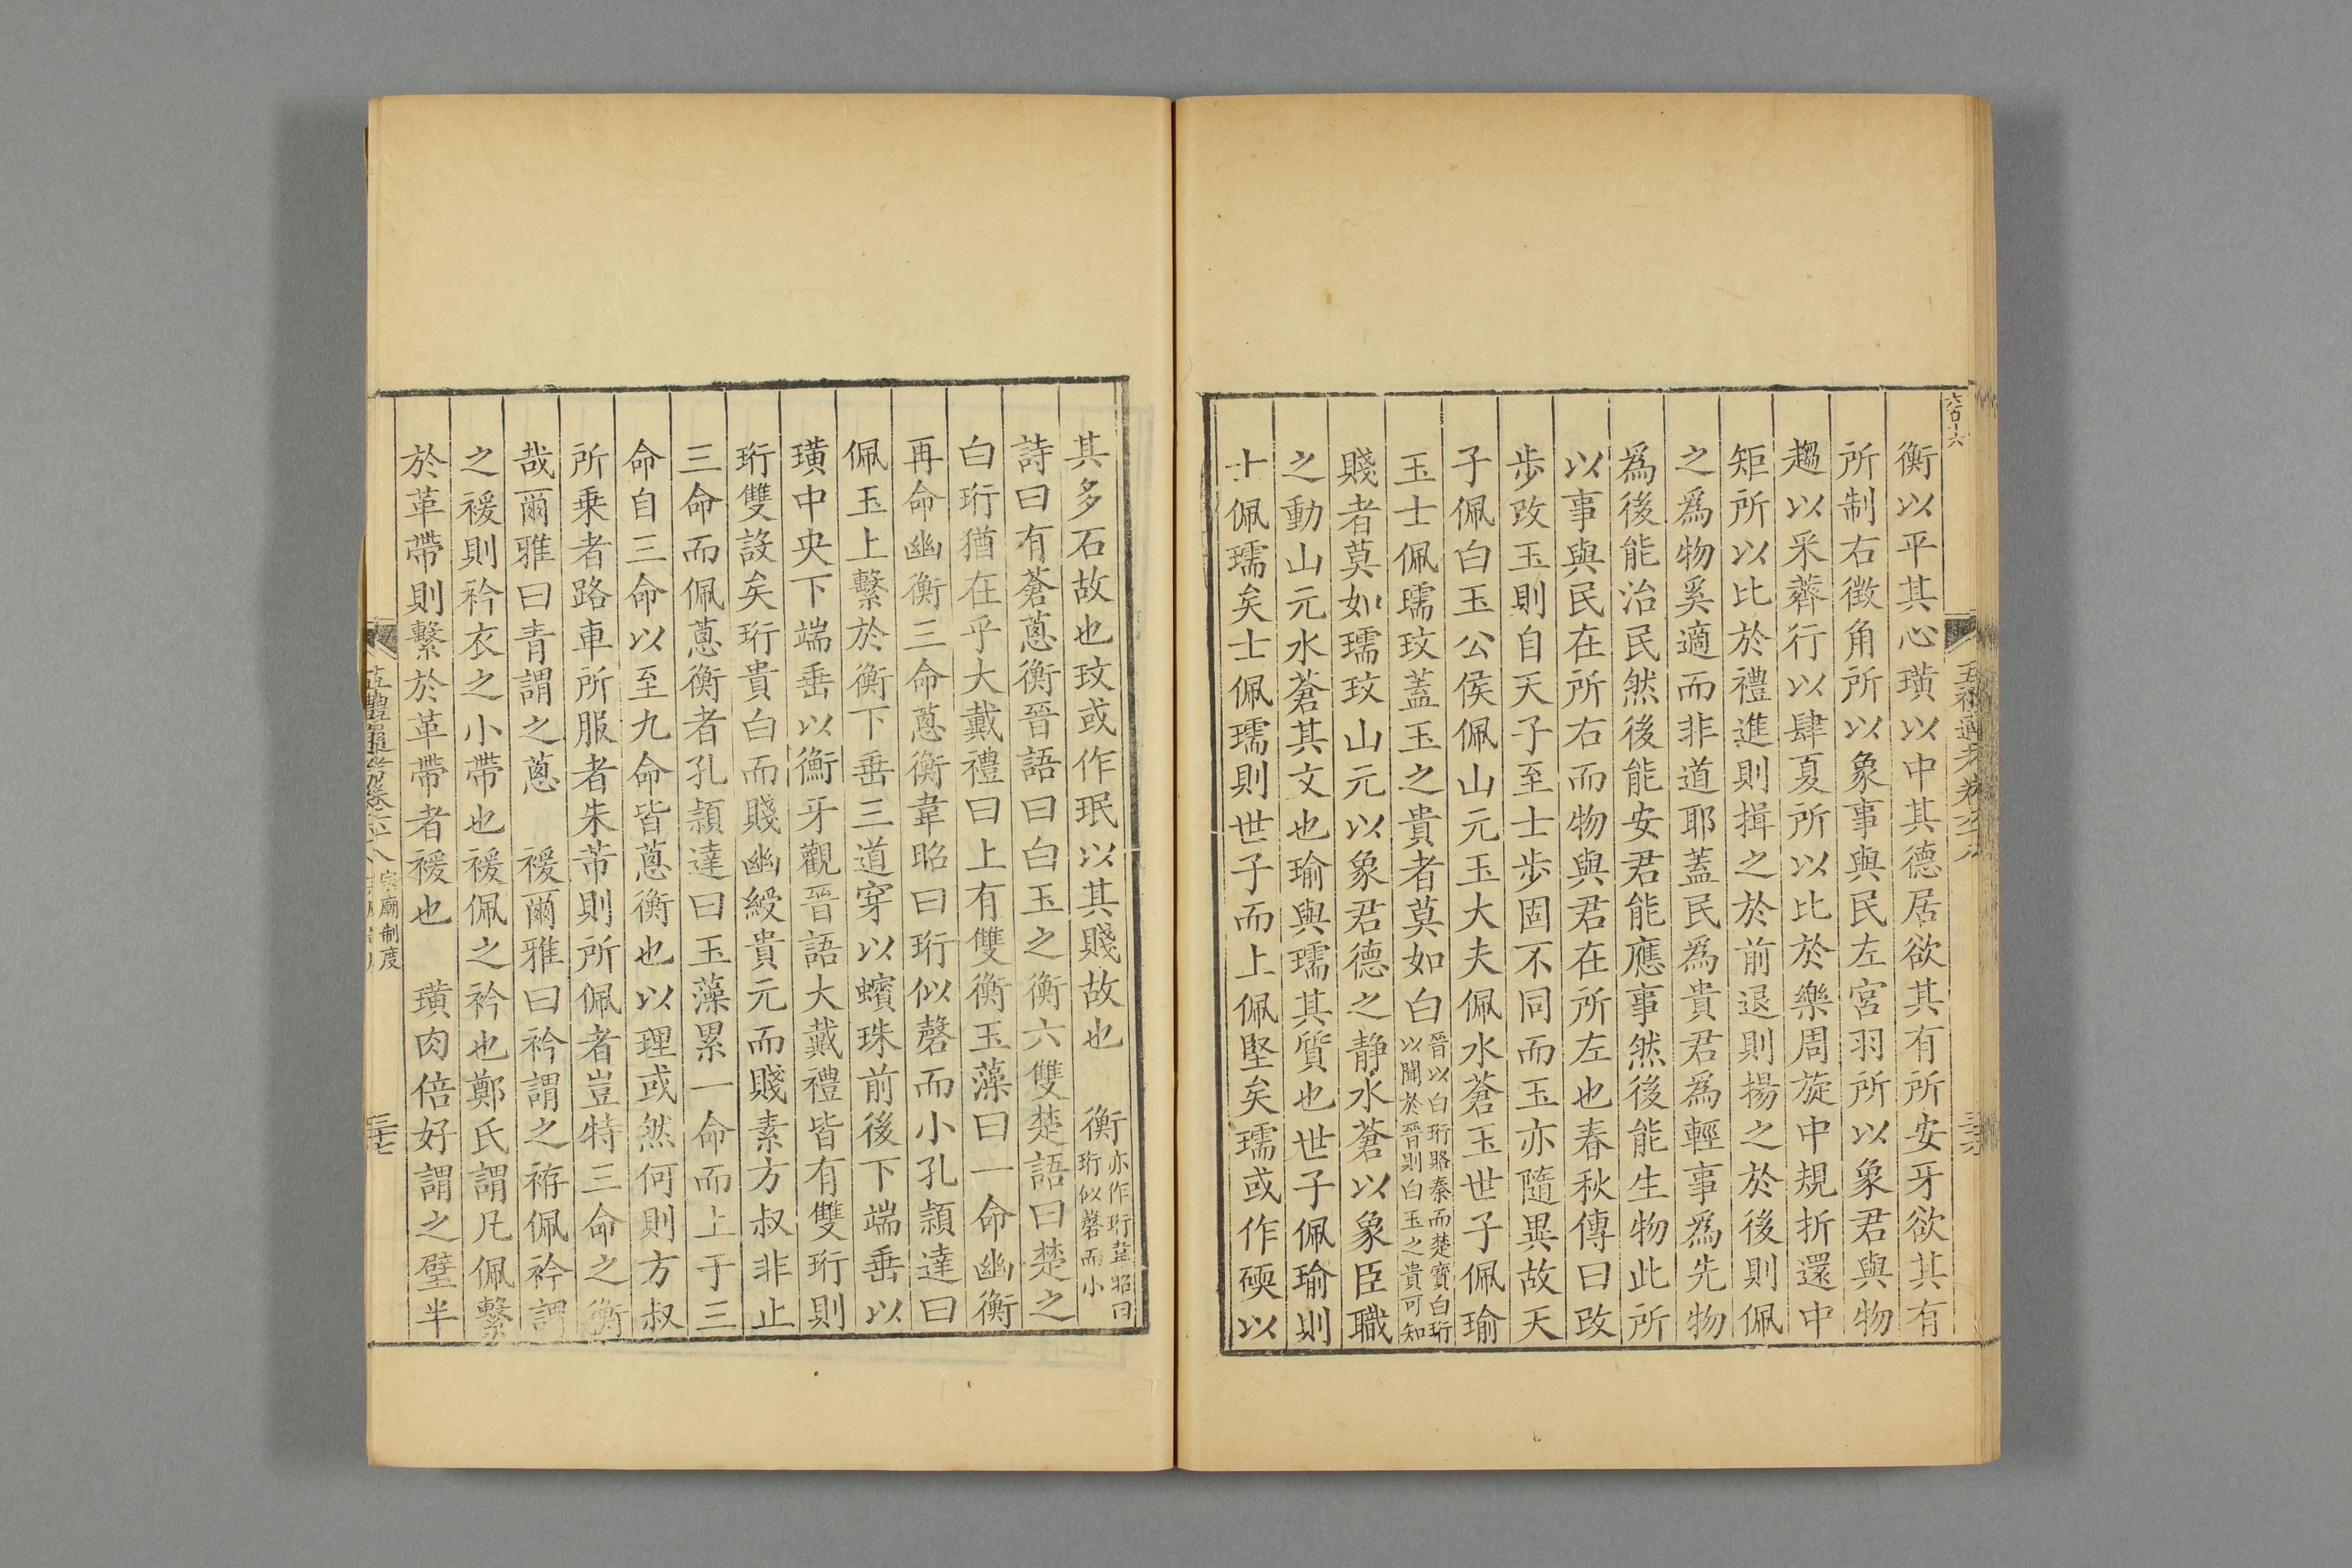 六百十六
五禮通考卷六十八
三十六
衡以平其心璜以中其德居欲其有所安牙欲其有
所制右徵角所以象事與民左宮羽所以象君與物
趨以采薺行以肆夏所以比於樂周旋中規折還中
矩所以比於禮進則揖之於前退則揚之於後則佩
之爲物奚適而非道耶蓋民爲貴君爲輕事爲先物
爲後能治民然後能安君能應事然後能生物此所
以事與民在所右而物與君在所左也春秋傳曰改
步改玉則自天子至士步固不同而玉亦隨異故天
子佩白玉公侯佩山元玉大夫佩水蒼玉世子佩瑜
玉士佩瓀玟蓋玉之貴者莫如白晉以白珩賂秦而楚寳白珩以聞於晉則白玉之貴可知
賤者莫如瓀玟山元以象君德之静水蒼以象臣職
之動山元水蒼其文也瑜與瓀其質也世子佩瑜則
士佩瓀矣士佩瓀則世子而上佩堅矣瓀或作碝以
其多石故也玟或作珉以其賤故也 衡亦作珩韋昭曰珩似磬而小
詩曰有蒼蔥衡晉語曰白玉之衡六雙楚語曰楚之
白珩猶在乎大戴禮曰上有雙衡玉藻曰一命幽衡
再命幽衡三命蔥衡韋昭曰珩似磬而小孔穎達曰
佩玉上繫於衡下垂三道穿以蠙珠前後下端垂以
璜中央下端垂以衝牙觀晉語大戴禮皆有雙珩則
珩雙設矣珩貴白而賤幽綬貴元而賤素方叔非止
三命而佩蔥衡者孔穎達曰玉藻累一命而上于三
命自三命以至九命皆蔥衡也以理或然何則方叔
所乗者路車所服者朱芾則所佩者豈特三命之衡
哉爾雅曰青謂之蔥 禐爾雅曰衿謂之袸佩衿謂
之禐則衿衣之小帶也禐佩之衿也鄭氏謂凡佩繫
於革帶則繫於革帶者禐也 璜肉倍好謂之璧半
五禮通考卷六十八
宗廟制度
三十七